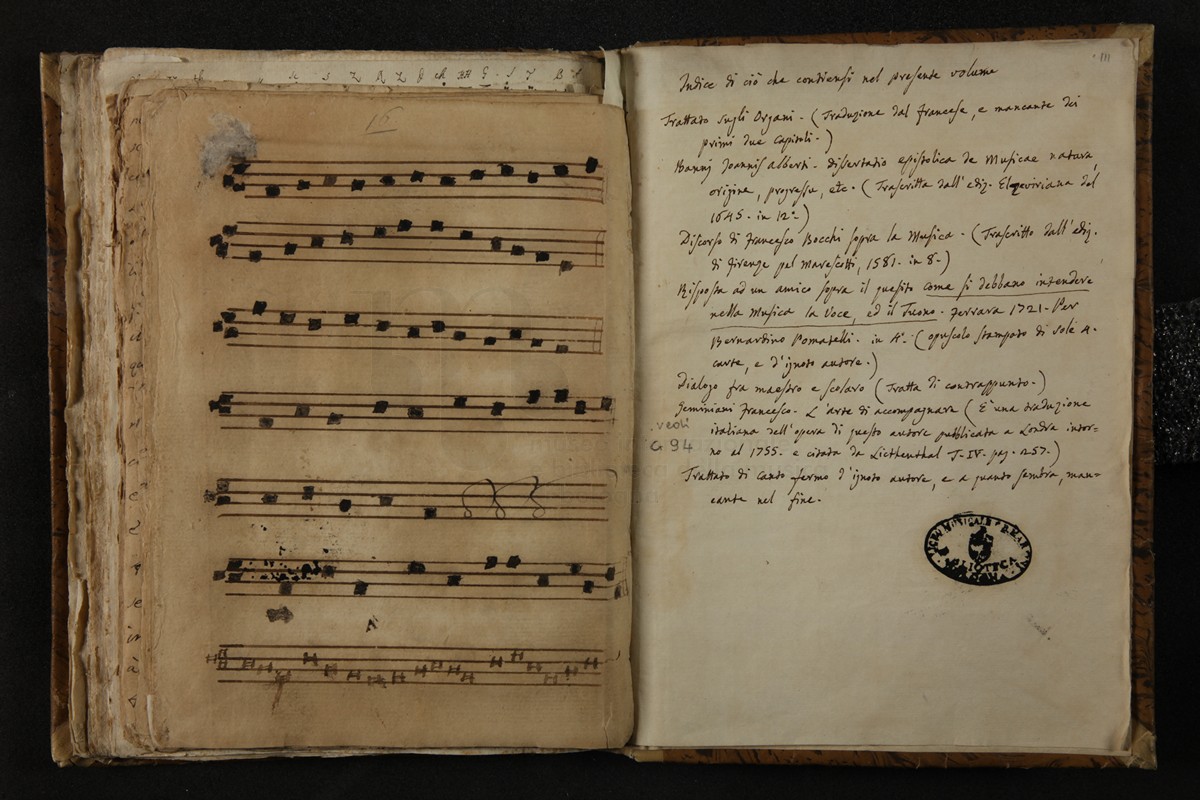 16
111
Indice di ciò che contiensi nel presente volume
Trattato sugli Organi - (Traduzione dal francese, e mancante dei
primi due capitoli -)
Bannj Joannis alberti - dissertatio epistolica de Musicae natura,
origine, progressu, etc. (Trascritta dall'ediz. Elzeviriana del
1645. in 12°-)
Discorso di Francesco Bocchi sopra la Musica - (Trascritto dall'ediz.
di firenze pel Marescotti, 1581. in 8-)
Risposta ad un amico sopra il quesito come si debbano intendere
nella Musica la Voce, ed il Tuono. ferrara 1721. Per
Bernardino Pomatelli. in 4° - (opuscolo stampato di sole 4.
carte, e d'ignoto autore.)
Dialogo fra maestro e scolaro (Tratta di contrappunto.)
Geminiani francesco. L'arte di accompagnare (È una traduzione
italiana dell'opera di questo autore pubblicata a Londra intor-
no al 1755. e citata da Licthenthal T. IV. pag. 257.)
Trattato di canto fermo d'ignoto autore, e a quanto sembra, man-
cante nel fine.
vedi
G 94
LICEO MUSICALE
BIBLIOTECA